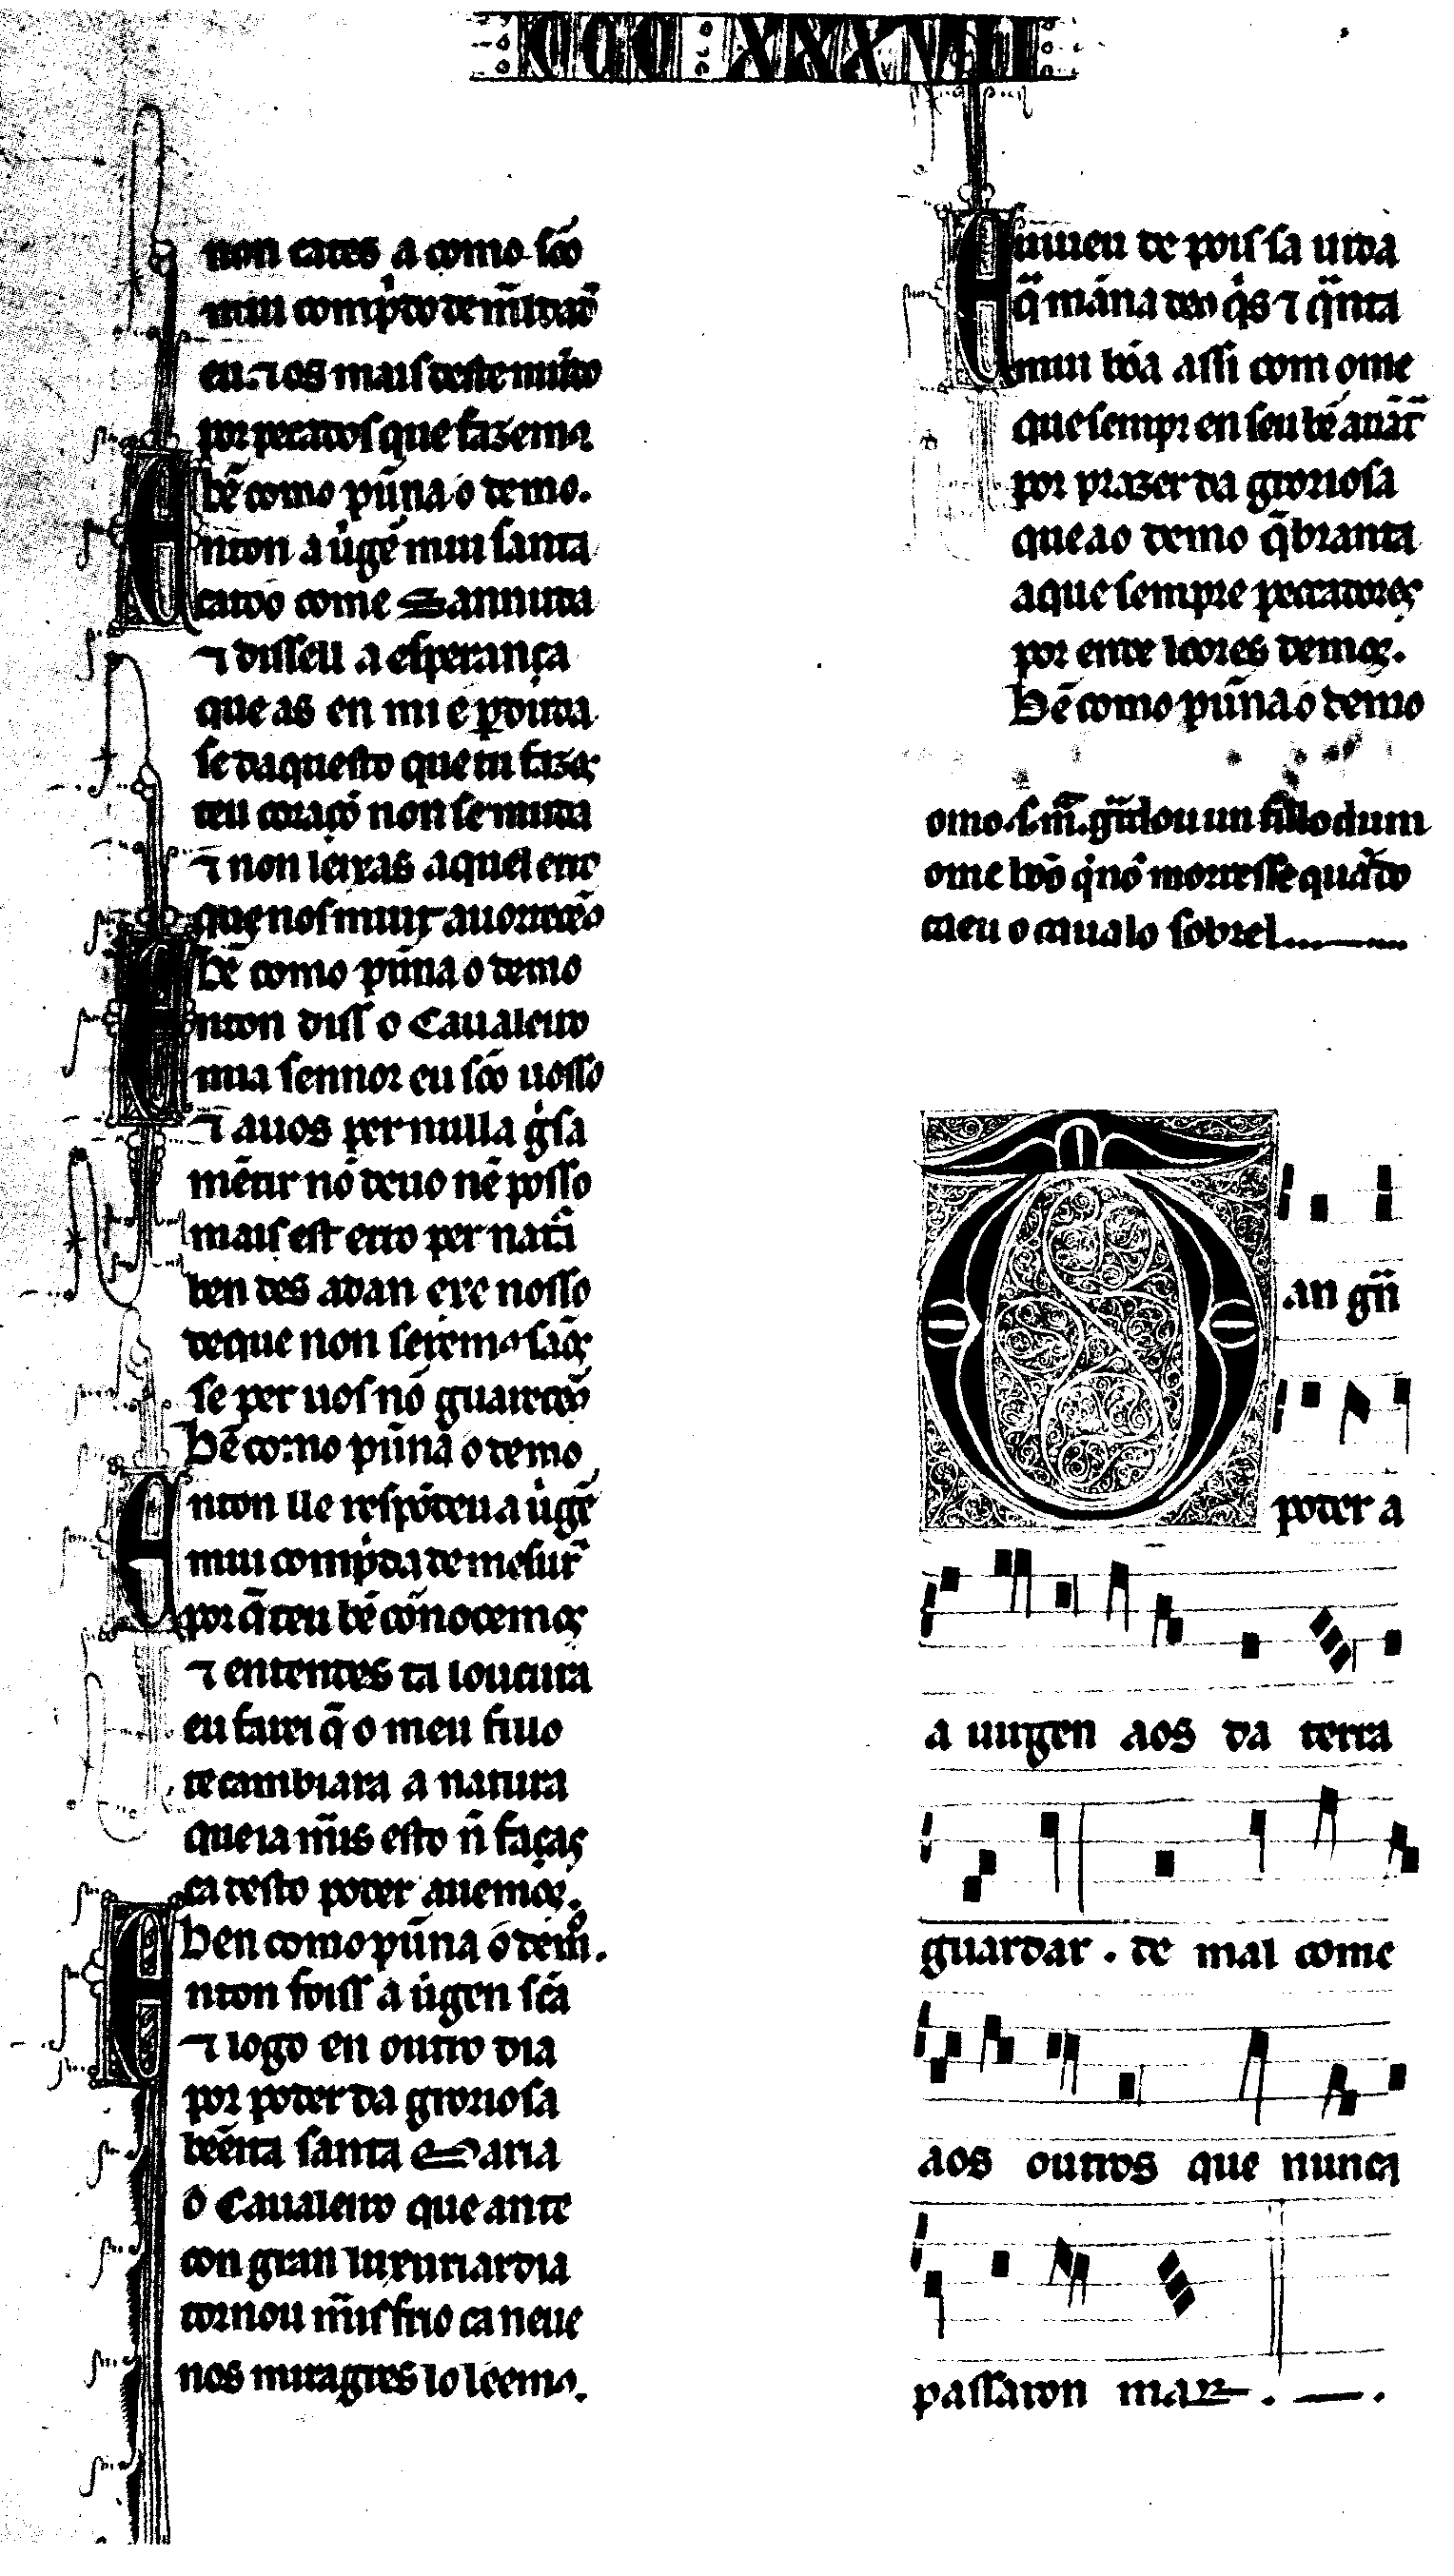 CCC : XXXVII
non cates a como sc̃o
mui comp̓do de m̃idad̃
eu. ⁊ os mais deste mũdo
por pecados que fazemꝯ.
bẽ como pũna o demo.
Enton a uͥgẽ mui santa
catoo come Sannuda
⁊ disseu a esperança
que as en mi e ꝑduda
se daquesto que tu fazes
teu coraçõ non se muda
⁊ non leixas aquel erro
que nos muit auorrecẽo
bẽ como pũna o demo
Enton diss o Caualeiro
mia sennor eu sõo uosso
⁊ a uos per nulla gͥsa
mẽtir nõ deuo nẽ posso
mais est erro per natã
ben des adan exe nosso
de que non seremos sãos
se per uos nõ guarecẽos
bẽ como pũna o demo
Enton lle respõdeu a uͥgẽ
mui comp̓da de mesur̃
por q̃ teu bẽ cõnocemos
⁊ entendes ta loucura
eu farei q̃ o meu fillo
te cambiara a natura
que ia m̃is esto ñ faças
ca desto poder auemos.
ben como pũna o dem̊.
Enton foiss a uͥgen scã
⁊ logo en outro dia
por poder da groriosa
bẽeita santa Maria
o Caualeiro que ante
con gran luxuria ardia
tornou m̃is frio ca neue
nos miragres lo leemꝯ.
E uiueu de pois sa uida
q̃ mãna deo qͥs ⁊ q̃nta
mui bõa assi com ome
que sempr en seu bẽ auãt̃
por prazer da groriosa
que ao demo q̃branta
a que sempre peccadores
por ende loores demos.
Bẽ como pũna o demo
omo .s. m̃. g̃rdou un fillo dum
ome bõo qͥ nõ morresse quãdo
caeu o caualo sobrel
Tan gr̃n
poder a
a uirgen aos da terra
guardar . de mal come
aos outros que nunca
passaron mar .